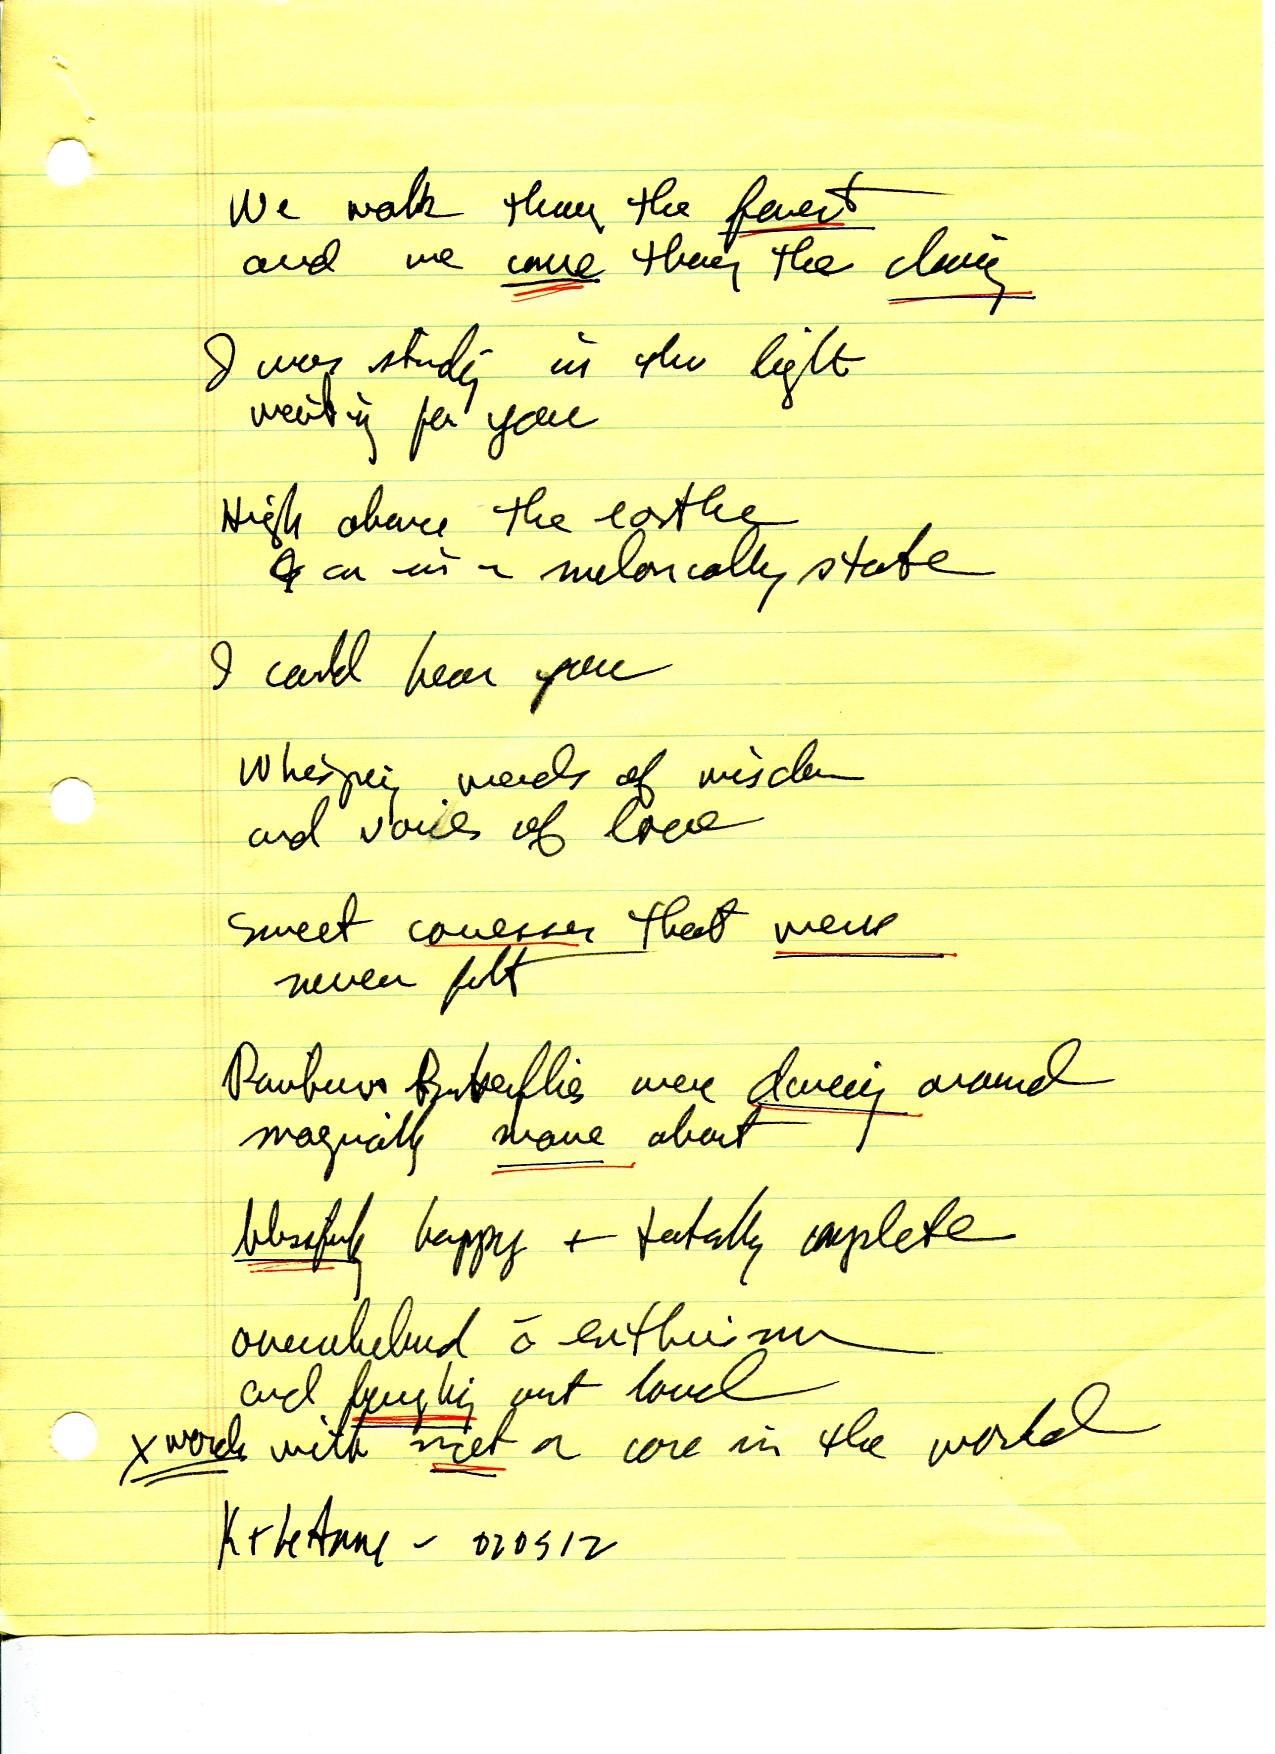 We walk thru the forest
and we come thru the clearing
I was standing in the light
waiting for you
High above the earthe
in a state
I could hear you
Whispering words of wisdom
and voices of love
Sweet that were
never felt
Butterflies were dancing around
magically move about
blissfully happy + totally complete
overwhelmed c̄ enthusiasm
and laughing out loud
x words with not a care in the world
K + LeAnne - 020512